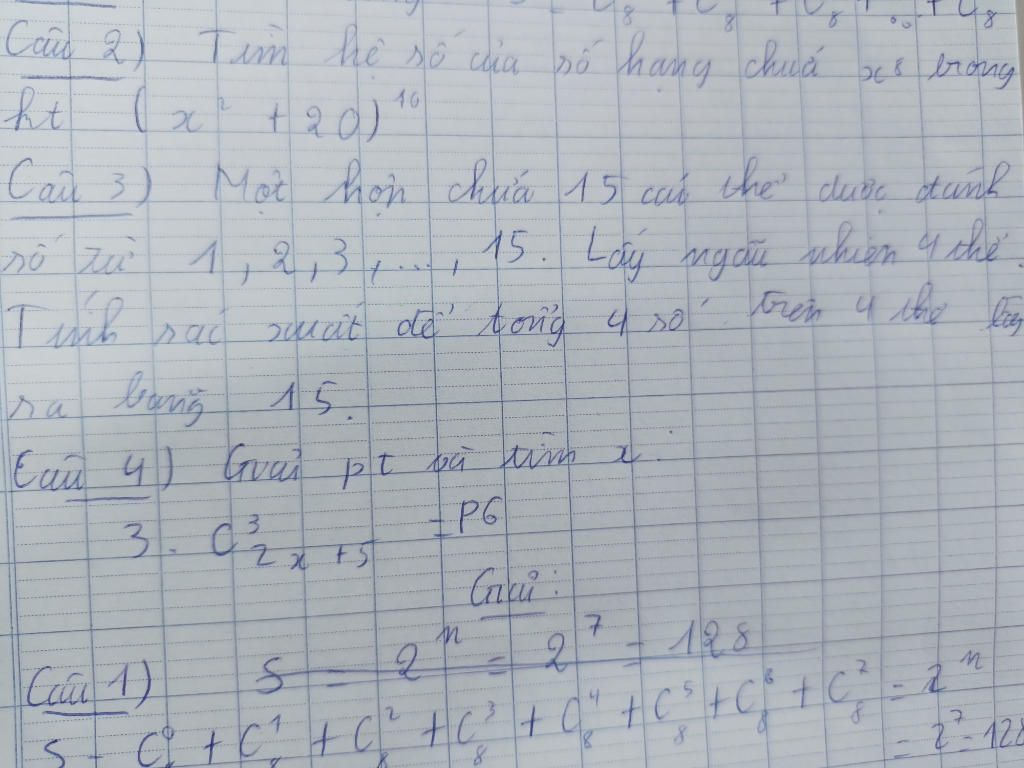 C₈ + C₈ + C₈ + ... + C₈
Câu 2) Tìm hệ số của số hạng chứa x⁸ trong
ht (x² + 20)¹⁰
Câu 3) Một hộp chứa 15 cái thẻ được đánh
số từ 1, 2, 3, ..., 15. Lấy ngẫu nhiên 4 thẻ.
Tính xác xuất để tổng 4 số trên 4 thẻ lấy
ra bằng 15.
Câu 4) Giải pt và tìm x:
3. C³₂ₓ₊₅ = P6
Giải:
Câu 1) S = 2ⁿ = 2⁷ = 128
S = C⁰₈ + C¹₈ + C²₈ + C³₈ + C⁴₈ + C⁵₈ + C⁶₈ + C⁷₈ = 2ⁿ
= 2⁷ = 128